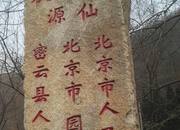 源仙
北京市人
北京市园
密云县人